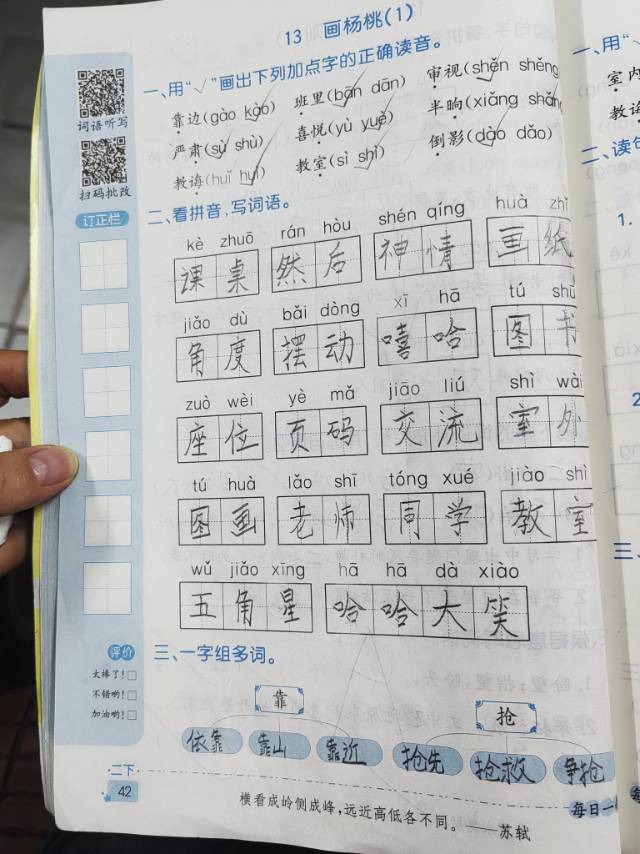 13 画杨桃(1)
一、用“√”画出下列加点字的正确读音。
靠边(gào kào) 班里(bān dān) 审视(shěn shěng
严肃(sù shù) 喜悦(yù yuè) 半晌(xiǎng shǎng
教诲(huǐ huì) 教室(sì shì) 倒影(dào dǎo)
词语听写
扫码批改
订正栏
二、看拼音,写词语。
kè zhuō rán hòu shén qíng huà zhǐ
课桌 然后 神情 画纸
jiǎo dù bǎi dòng xī hā tú shū
角度 摆动 嘻哈 图书
zuò wèi yè mǎ jiāo liú shì wài
座位 页码 交流 室外
tú huà lǎo shī tóng xué jiào shì
图画 老师 同学 教室
wǔ jiǎo xīng hā hā dà xiào
五角星 哈哈大笑
三、一字组多词。
靠 抢
依靠 靠山 靠近 抢先 抢救 争抢
评价
太棒了!
不错哟!
加油哟!
二下
42
横看成岭侧成峰,远近高低各不同。——苏轼
每日一
一、用“
室内
教诲
二、读句
1.
2
三、